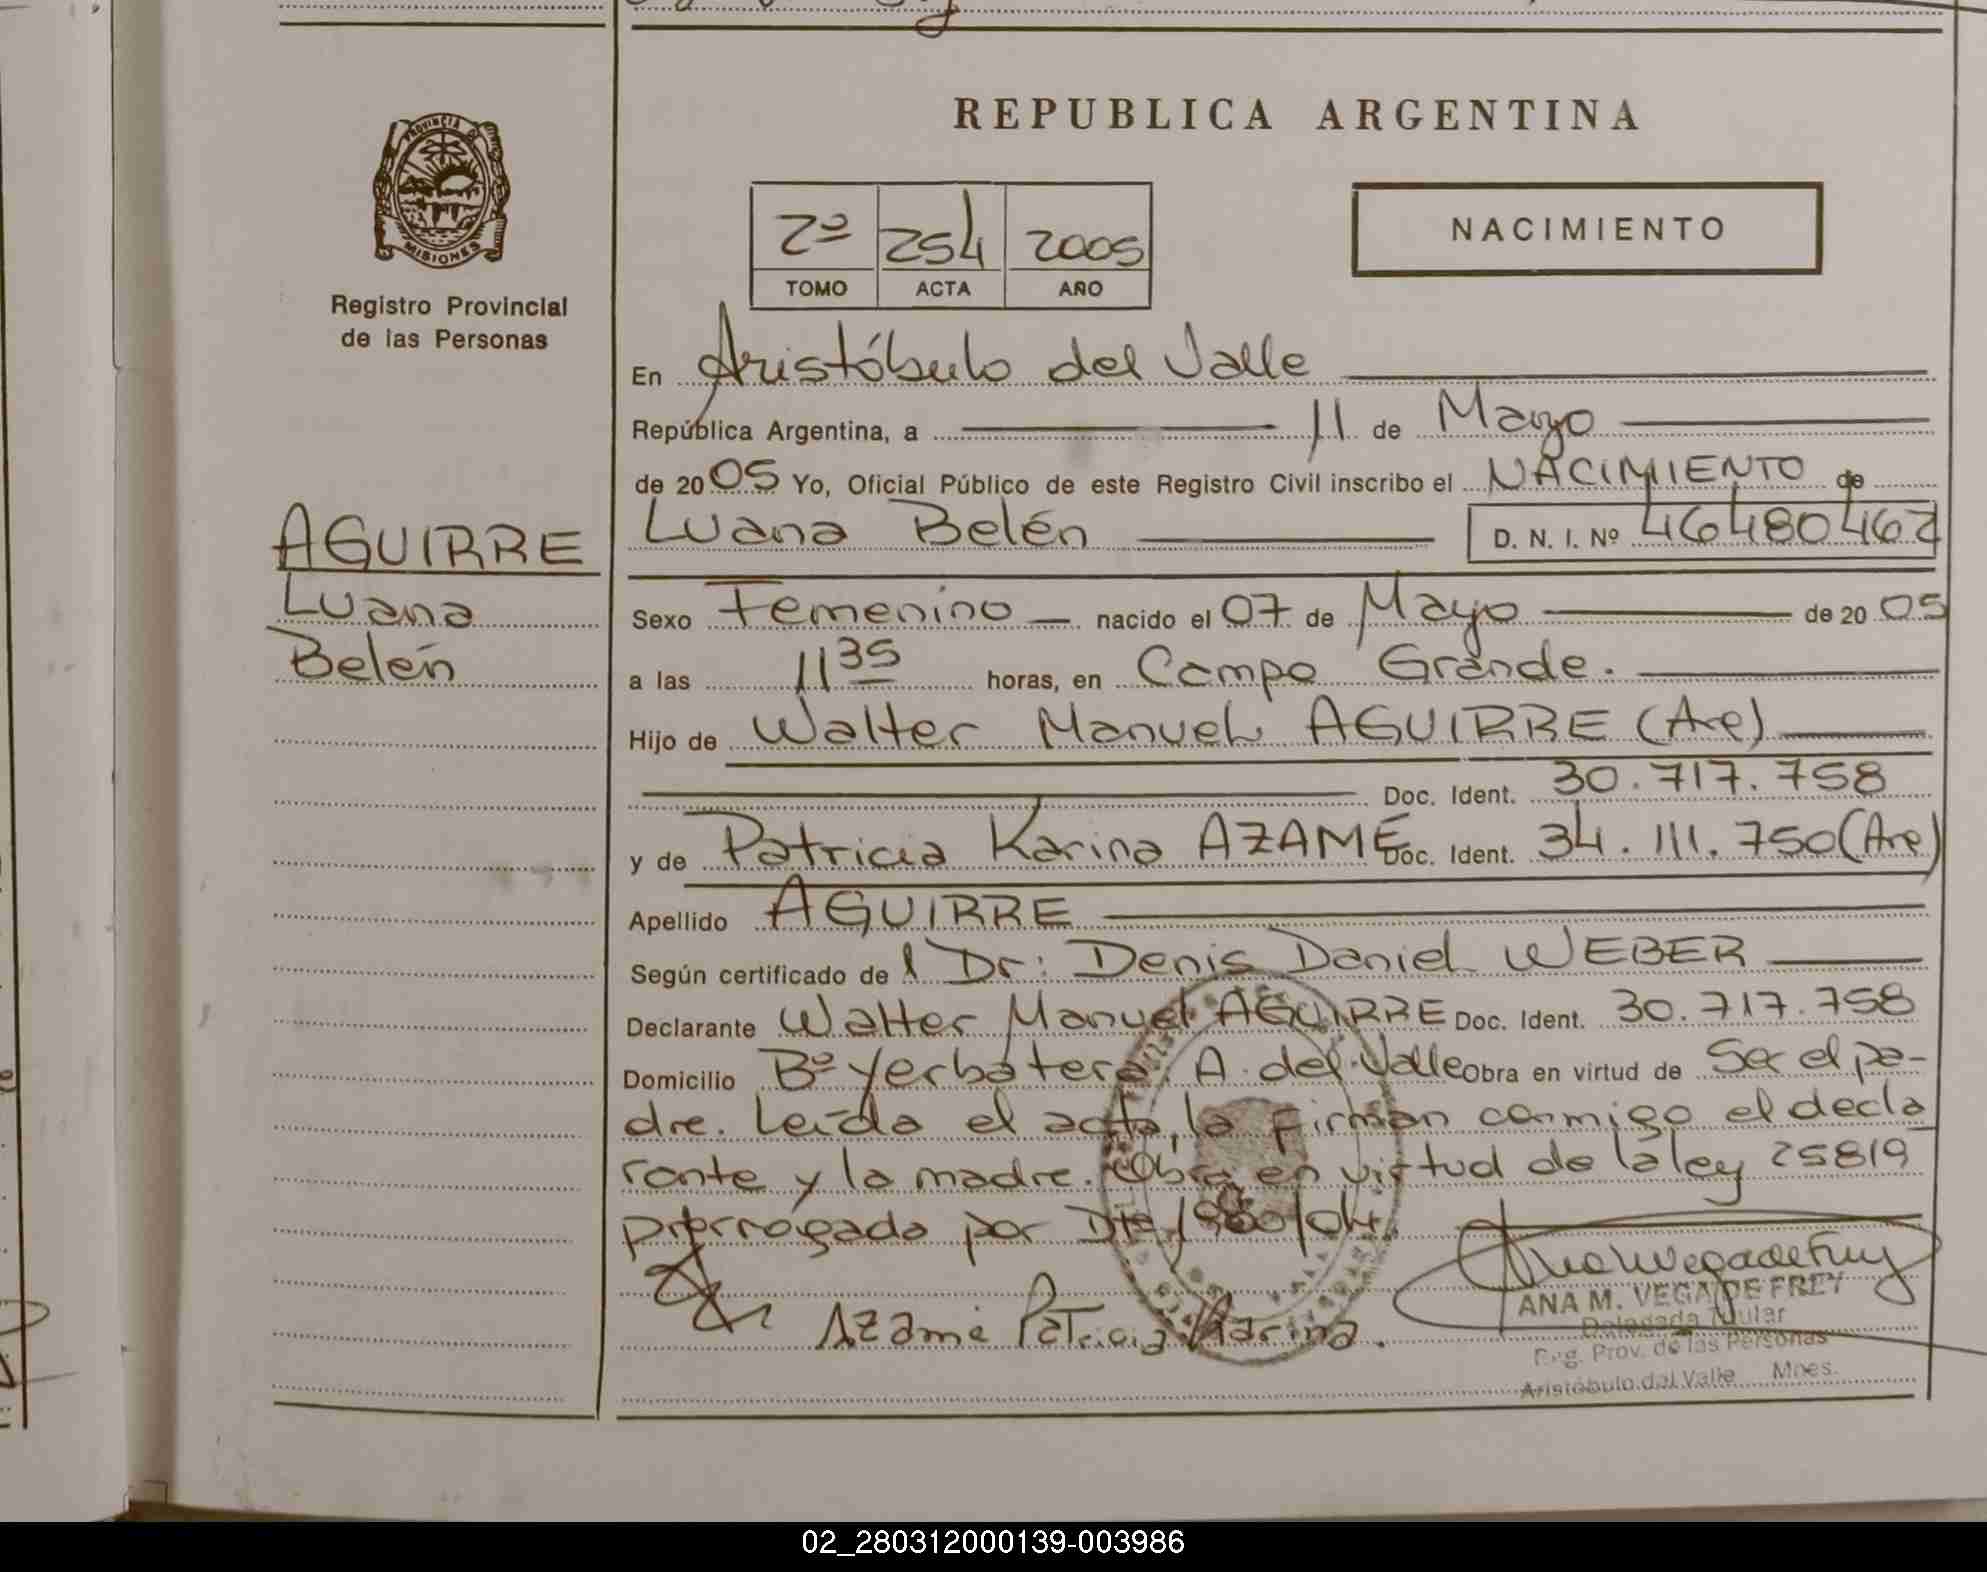 REPUBLICA ARGENTINA
PROVINCIA DE
MISIONES
Registro Provincial
de las Personas
2º 254 2005
TOMO ACTA AÑO
NACIMIENTO
En Aristóbulo del Valle
República Argentina, a 11 de Mayo
de 2005 Yo, Oficial Público de este Registro Civil inscribo el NACIMIENTO de
AGUIRRE
Luana
Belén
Luana Belén D. N. I. Nº 46480462
Sexo Femenino nacido el 07 de Mayo de 2005
a las 11 35 horas, en Campo Grande.
Hijo de Walter Manuel AGUIRRE (Arg)
Doc. Ident. 30.717.758
y de Patricia Karina AZAME Doc. Ident. 34.111.750 (Arg)
Apellido AGUIRRE
Según certificado del Dr: Denis Daniel WEBER
Declarante Walter Manuel AGUIRRE Doc. Ident. 30.717.758
Domicilio Bº Yerbatero. A. del Valle Obra en virtud de Ser el pa-
dre. Leída el acta, la firman conmigo el decla
rante y la madre. Obra en virtud de la ley 25819
prorrogada por Dto 1980/04.
Azame Patricia Karina.
AnaMVegadeFrey
ANA M. VEGA DE FREY
Delegada Titular
Reg. Prov. de las Personas
Aristóbulo del Valle Mnes.
02_280312000139-003986